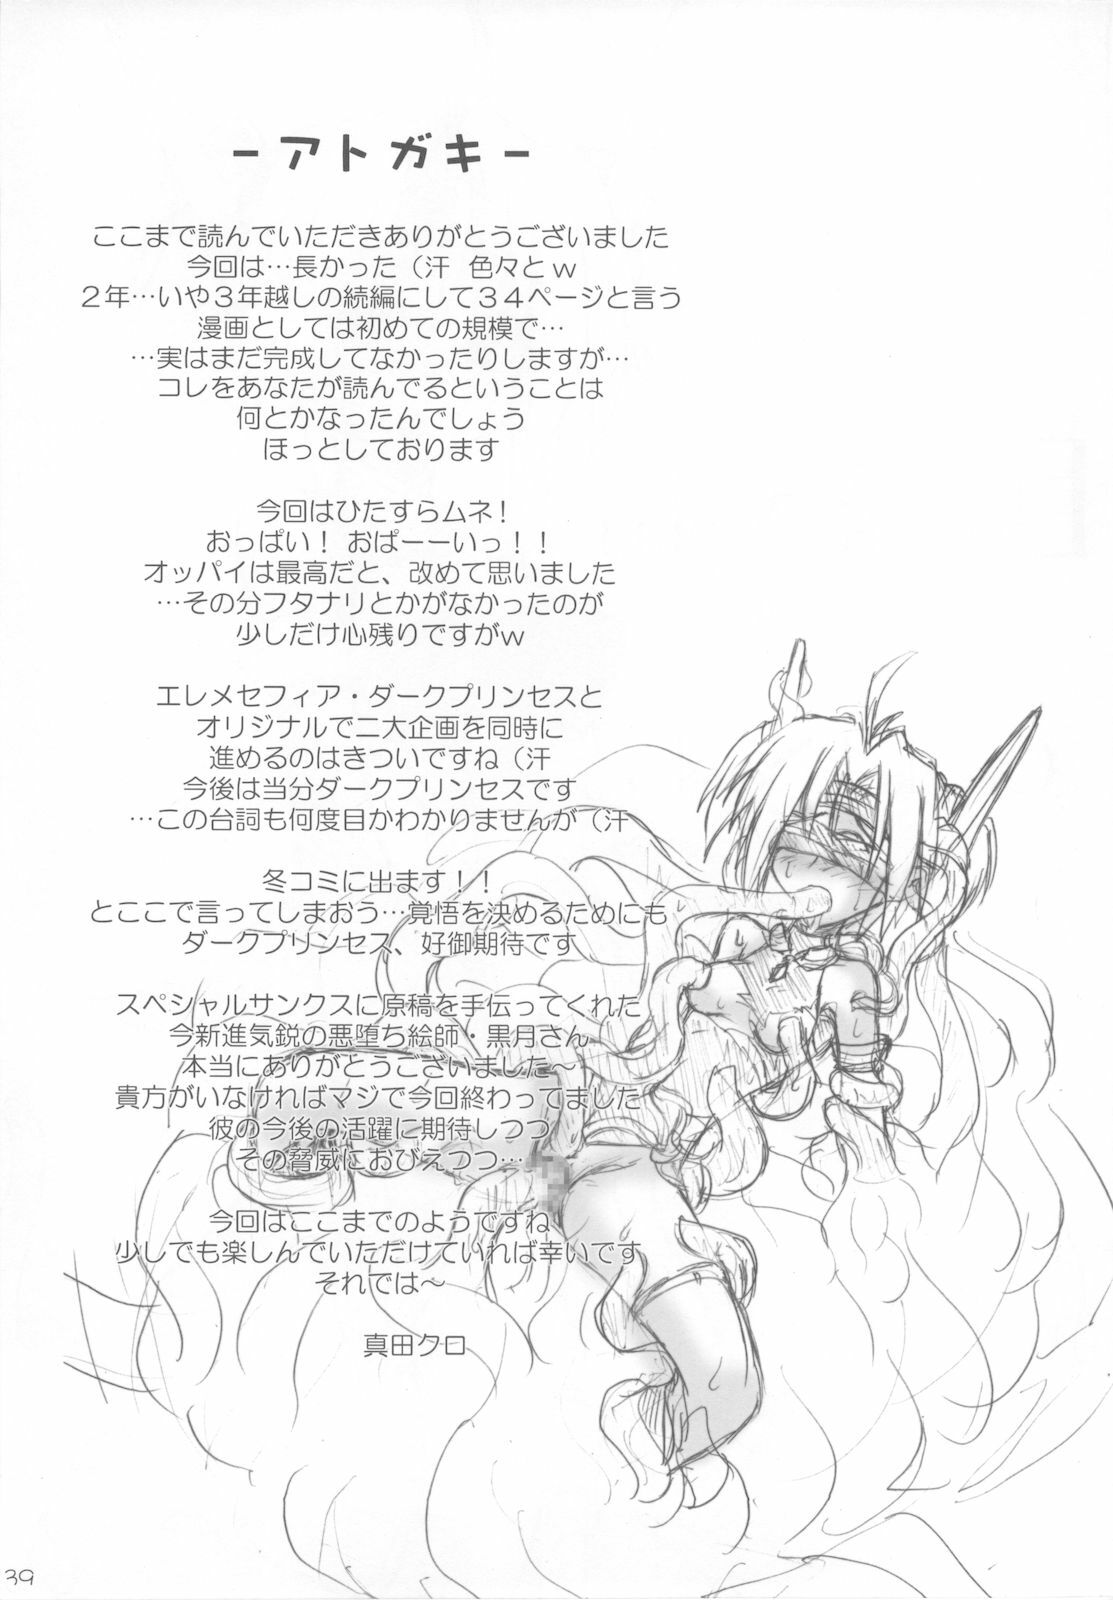 －アトガキ－
ここまで読んでいただきありがとうございました
今回は…長かった（汗　色々とｗ
２年…いや３年越しの続編にして３４ページと言う
漫画としては初めての規模で…
…実はまだ完成してなかったりしますが…
コレをあなたが読んでるということは
何とかなったんでしょう
ほっとしております
今回はひたすらムネ！
おっぱい！ おぱーーいっ！！
オッパイは最高だと、改めて思いました
…その分フタナリとかがなかったのが
少しだけ心残りですがｗ
エレメセフィア・ダークプリンセスと
オリジナルで二大企画を同時に
進めるのはきついですね（汗
今後は当分ダークプリンセスです
…この台詞も何度目かわかりませんが（汗
冬コミに出ます！！
とここで言ってしまおう…覚悟を決めるためにも
ダークプリンセス、好御期待です
スペシャルサンクスに原稿を手伝ってくれた
今新進気鋭の悪堕ち絵師・黒月さん
本当にありがとうございました～
貴方がいなければマジで今回終わってました
彼の今後の活躍に期待しつつ
その脅威におびえつつ…
今回はここまでのようですね
少しでも楽しんでいただけていれば幸いです
それでは～
真田クロ
39